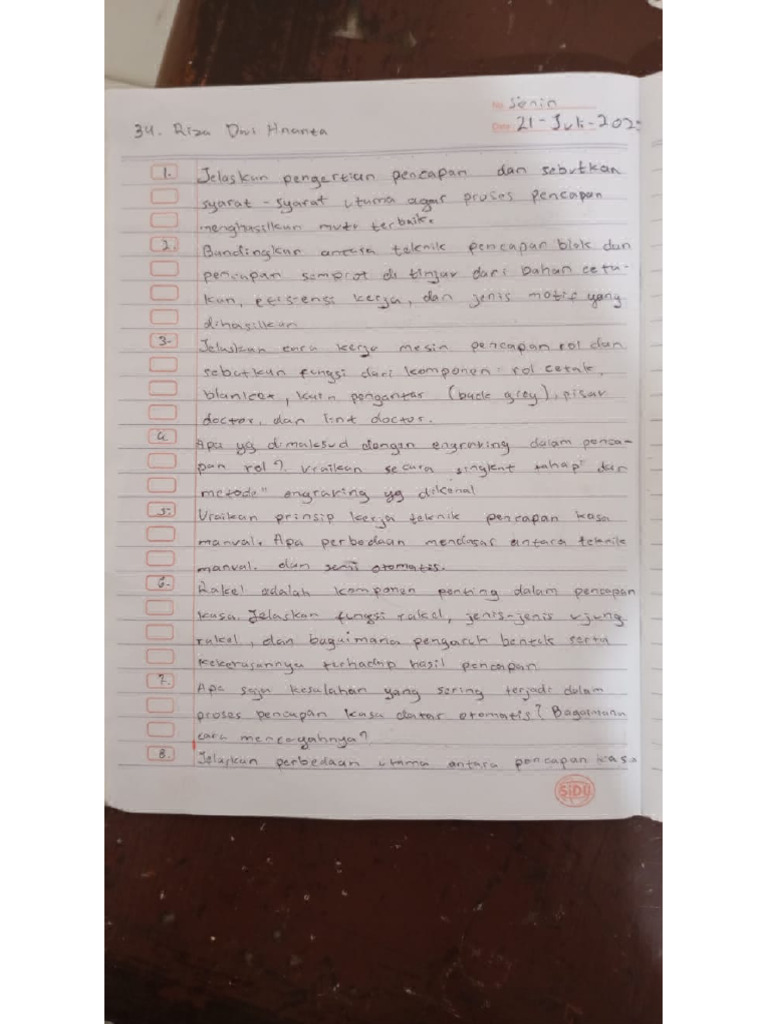 No. Senin
34. Riza Dwi Hnanta
Date 21-Juli-202
1. Jelaskan pengertian pencapan dan sebutkan
syarat-syarat utama agar proses pencapan
menghasilkan mutu terbaik.
2. Bandingkan antara teknik pencapan blok dan
pencapan semprot di tinjar dari bahan cetu-
kan, efisiensi kerja, dan jenis motif yang
dihasilkan
3. Jelaskan cara kerja mesin pencapan rol dan
sebutkan fungsi dari komponen: rol cetak,
blanket, kain pengantar (back grey), pisau
doctor, dan lint doctor.
4. Apa yg dimaksud dengan engraving dalam penca-
pan rol? Uraikan secara singkat tahap" dan
metode" engraving yg dikenal
5. Uraikan prinsip kerja teknik pencapan kasa
manual. Apa perbedaan mendasar antara teknik
manual. dan semi otomatis.
6. Rakel adalah komponen penting dalam pencapan
kasa. Jelaskan fungsi rakel, jenis-jenis ujung
rakel, dan bagaimana pengaruh bentuk serta
kekerasannya terhadap hasil pencapan
7. Apa saja kesalahan yang sering terjadi dalam
proses pencapan kasa datar otomatis? Bagaimana
cara mencegahnya?
8. Jelaskan perbedaan utama antara pencapan kasa
SiDU